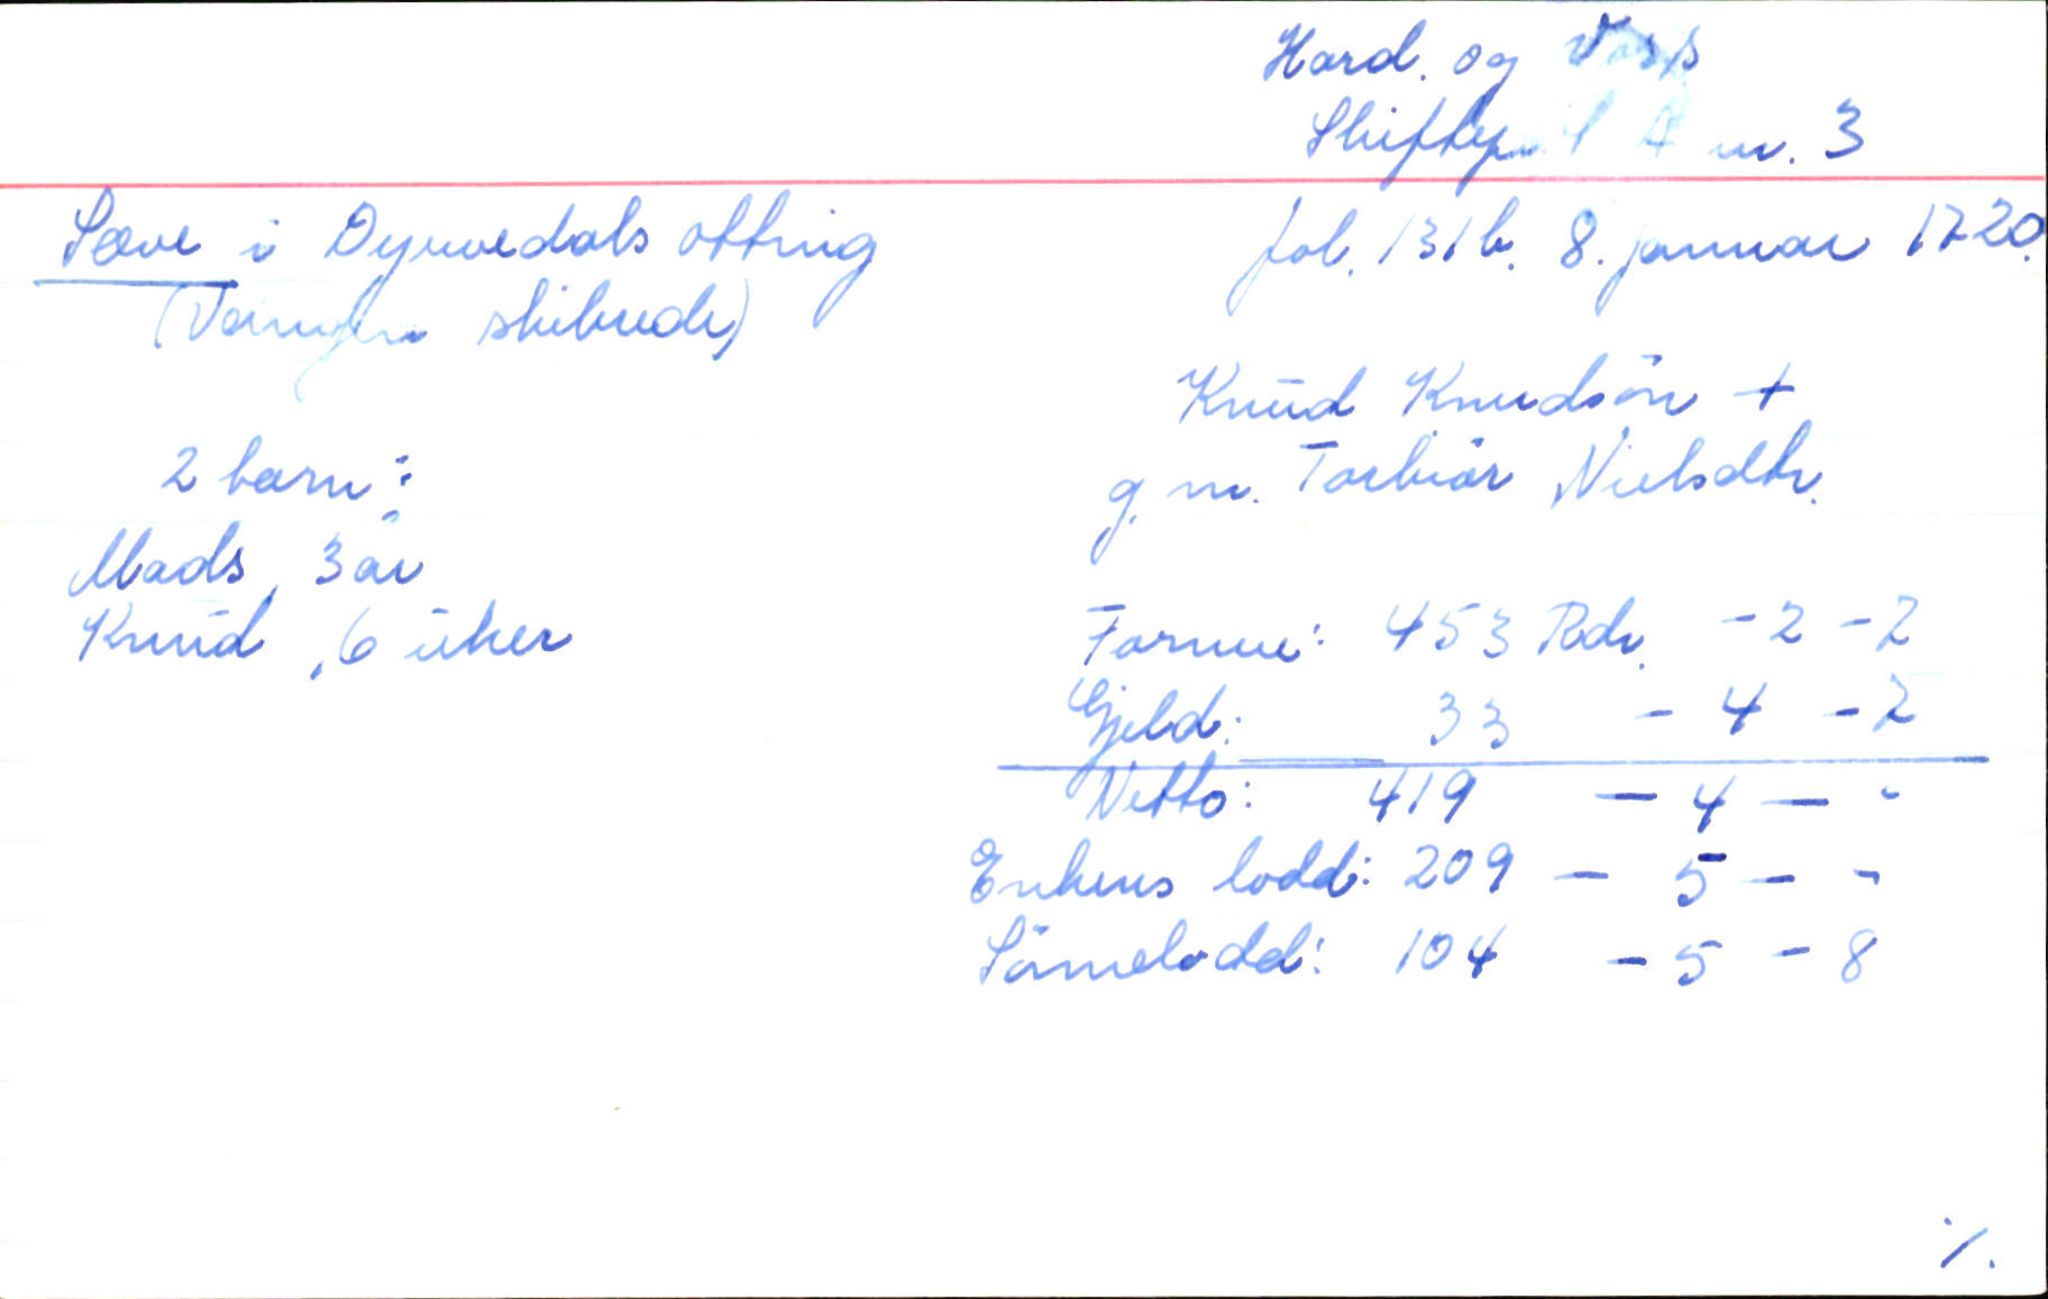 Hard. og Voss
Skiftepr. 1 A nr. 3
Sæve i Dyrvedals otting
fol. 131b. 8. januar 1720.
(Vangen skibrede)
Knud Knudsön +
g. m. Torbiör Nielsdtr.
2 barn:
Mads, 3 år
Knud, 6 uker
Formue: 453 Rdr. - 2 - 2
Gjeld: 33 - 4 - 2
Netto: 419 - 4 - -
Enkens lodd: 209 - 5 - -
Sönnelodd: 104 - 5 - 8
·/.